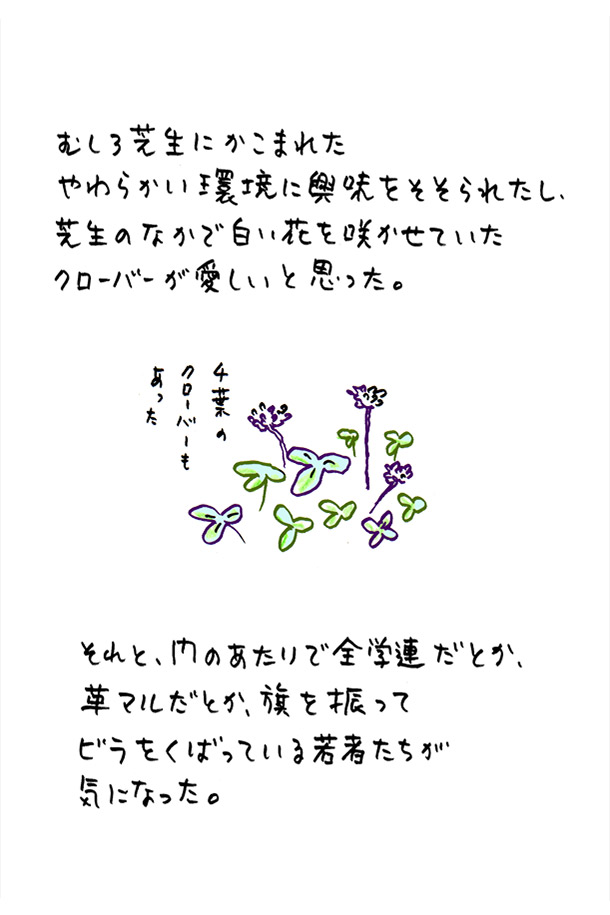 むしろ芝生にかこまれた
やわらかい環境に興味をそそられたし、
芝生のなかで白い花を咲かせていた
クローバーが愛しいと思った。
4葉の
クローバーも
あった
それと、門のあたりで全学連だとか、
革マルだとか、旗を振って
ビラをくばっている若者たちが
気になった。